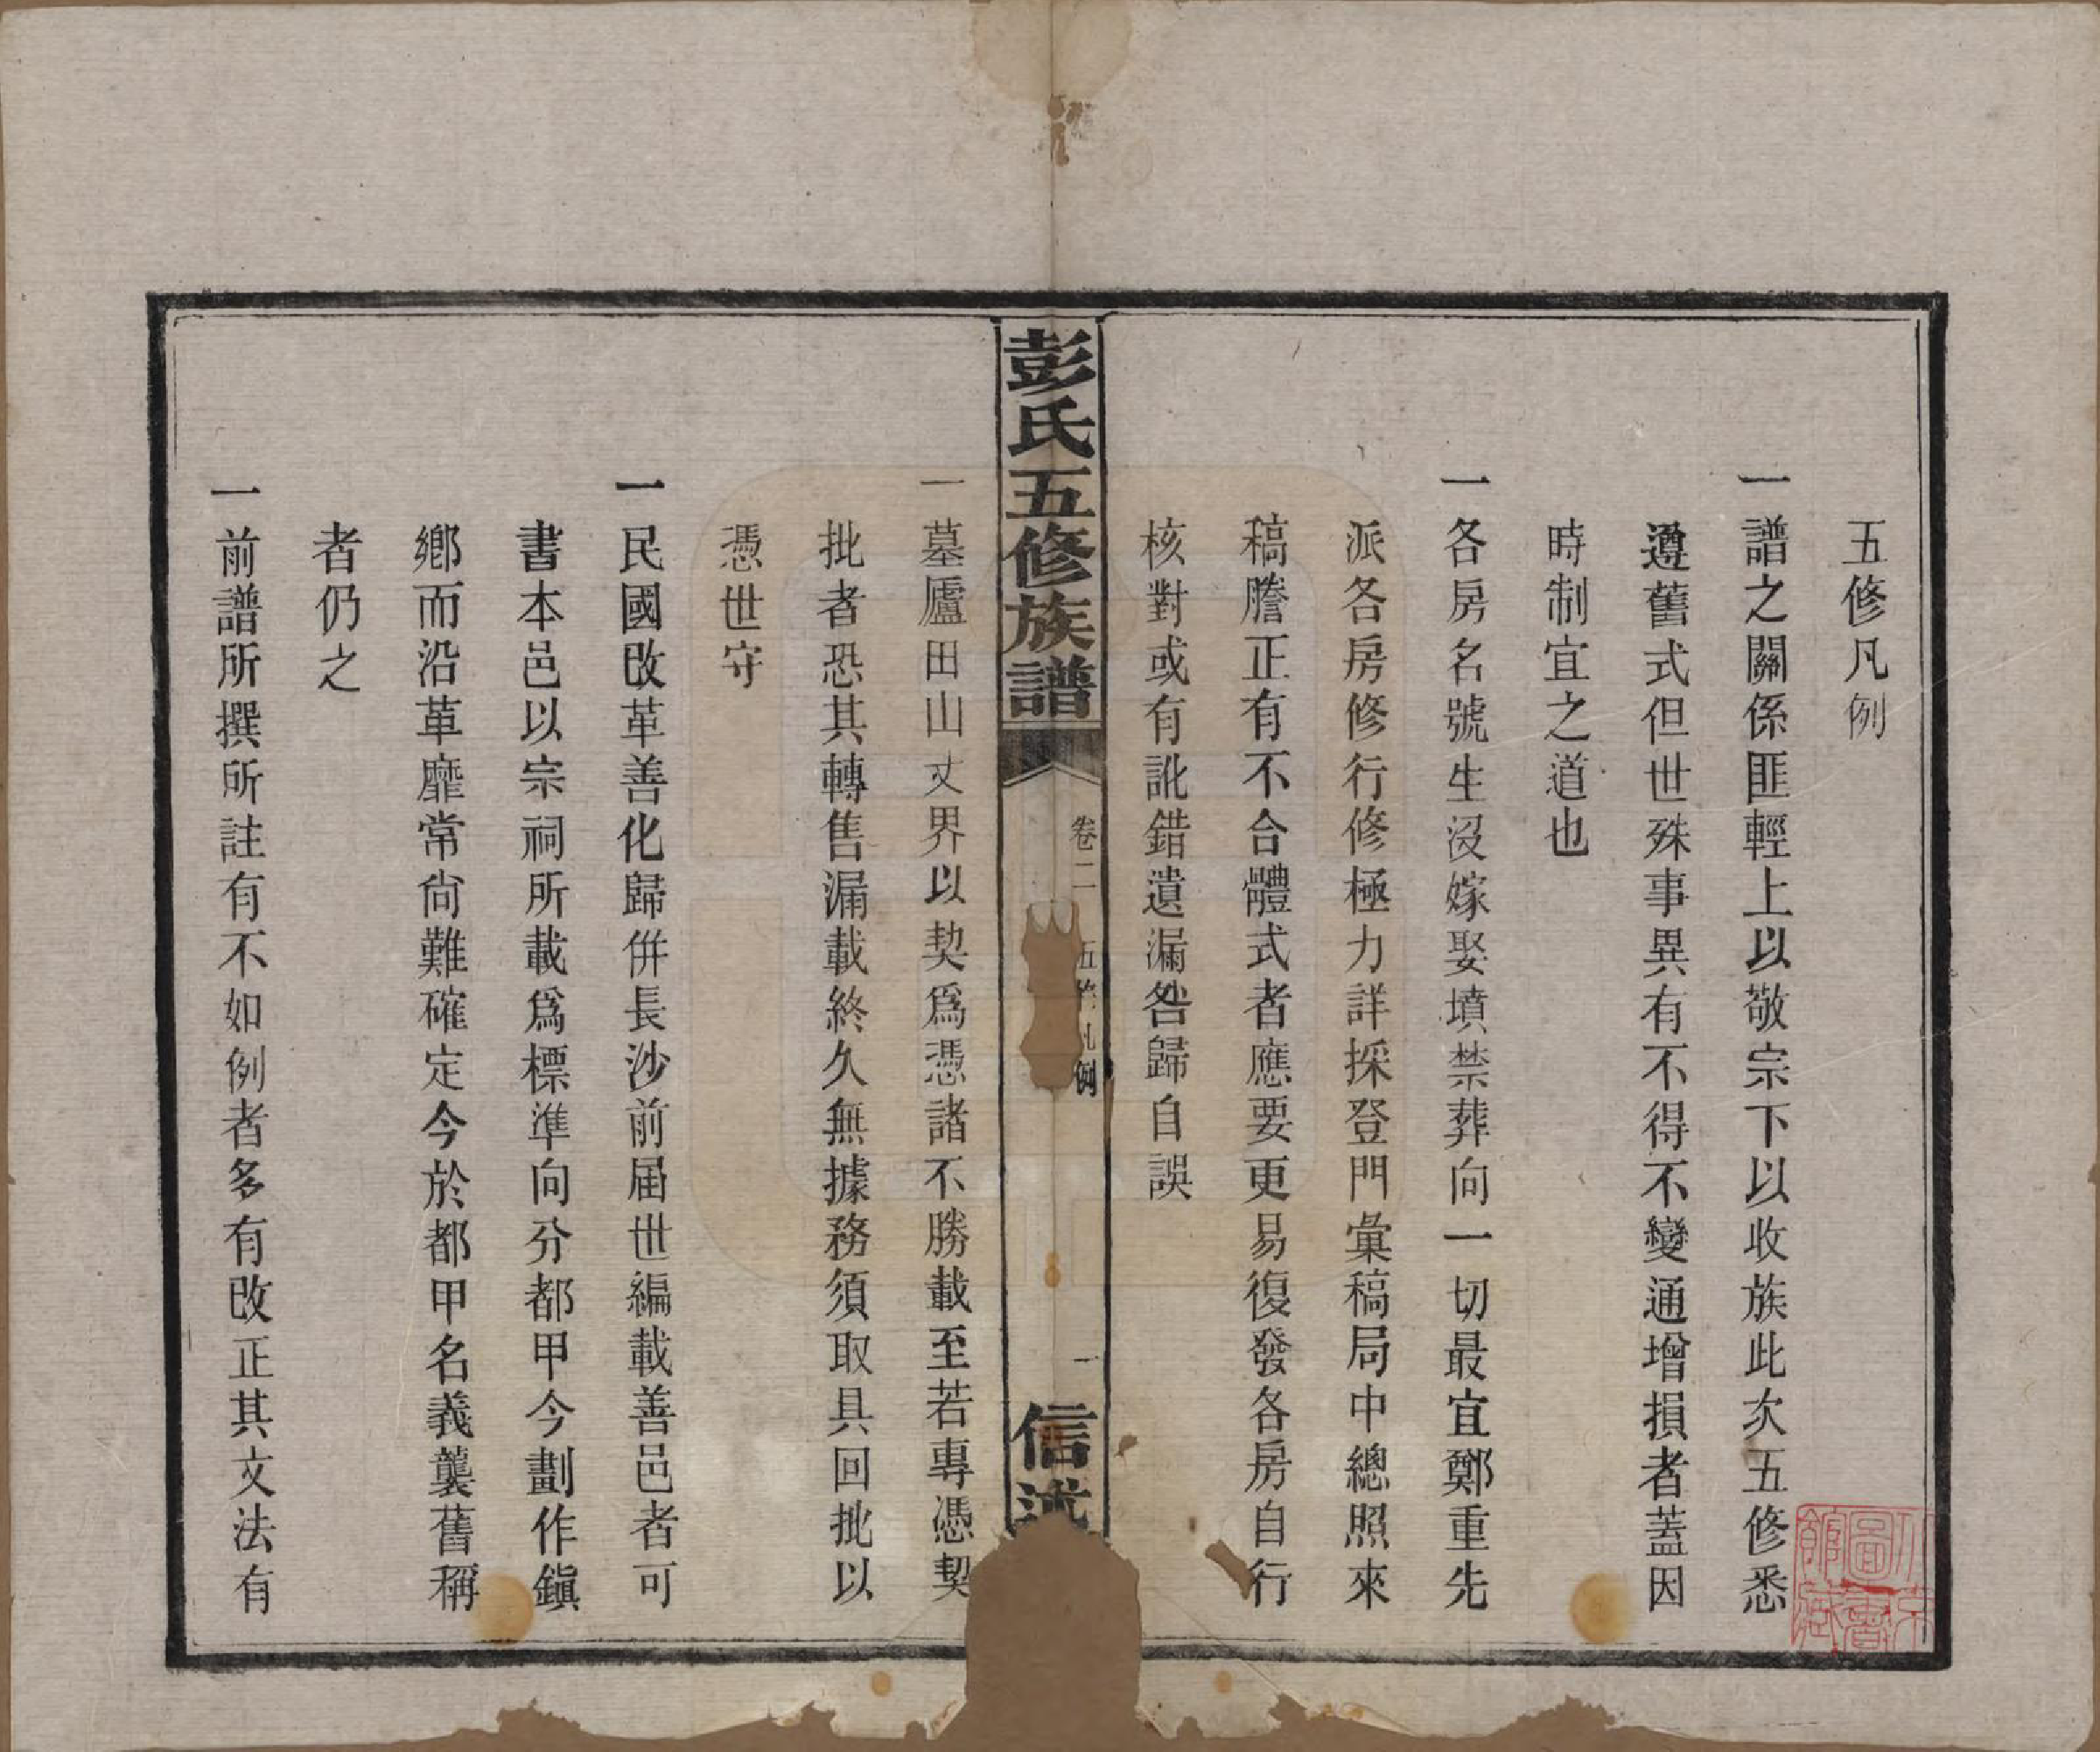 五修凡例
一譜之關係匪輕上以敬宗下以收族此次五修悉
遵舊式但世殊事異有不得不變通增損者蓋因
時制宜之道也
一各房名號生沒嫁娶墳禁葬向一切最宜鄭重先
派各房修行修極力詳採登門彙稿局中總照來
稿謄正有不合體式者應要更易復發各房自行
核對或有訛錯遺漏咎歸自誤
彭氏五修族譜
卷二
五修凡例
一
信述
一墓廬田山丈界以契爲憑諸不勝載至若專憑契
批者恐其轉售漏載終久無據務須取具回批以
憑世守
一民國改革善化歸併長沙前届世編載善邑者可
書本邑以宗祠所載爲標準向分都甲今劃作鎭
鄉而沿革靡常尙難確定今於都甲名義襲舊稱
者仍之
一前譜所撰所註有不如例者多有改正其文法有